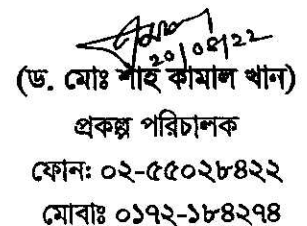 ২০/০৪/২২
(ড. মোঃ শাহ কামাল খান)
প্রকল্প পরিচালক
ফোনঃ ০২-৫৫০২৮৪২২
মোবাঃ ০১৭২-১৮৪২৭৪